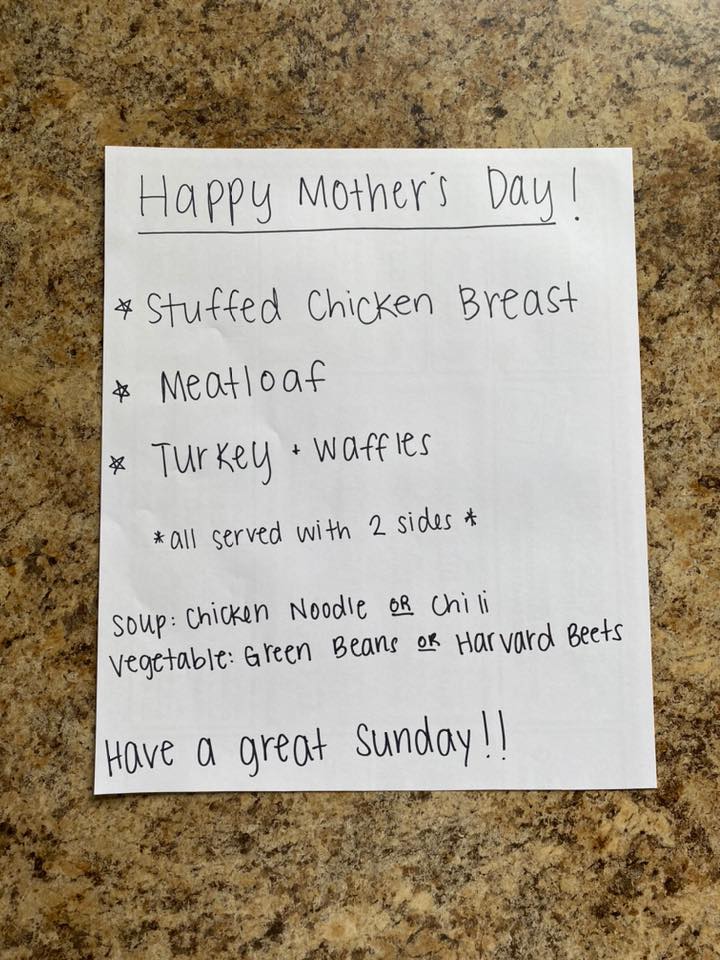 Happy Mother's Day!
☆ Stuffed Chicken Breast
☆ Meatloaf
☆ Turkey + Waffles
*all served with 2 sides*
Soup: Chicken Noodle OR Chili
Vegetable: Green Beans OR Harvard Beets
Have a great Sunday!!